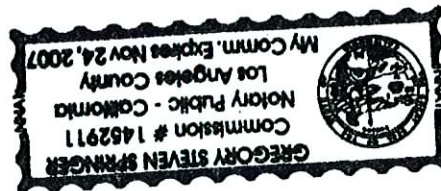 GREGORY STEVEN SPRINGER
Commission # 1452911
Notary Public - California
Los Angeles County
My Comm. Expires Nov 24, 2007